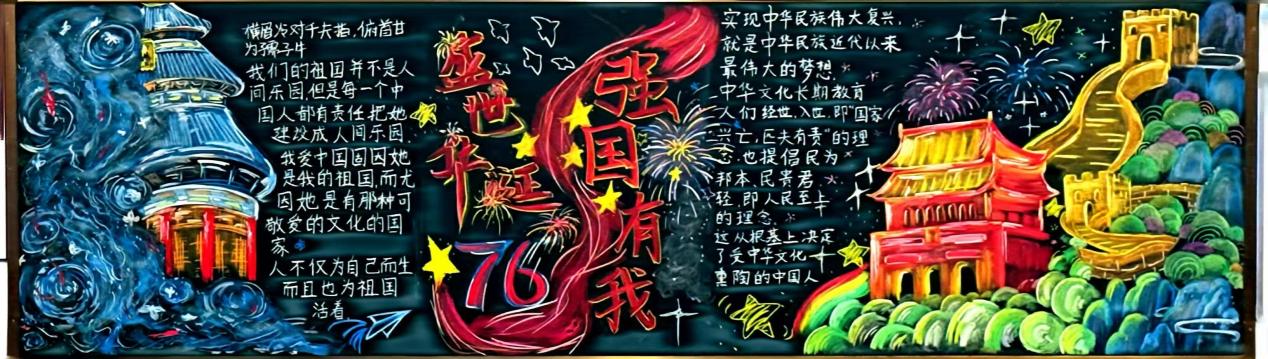 横眉冷对千夫指,俯首甘
为孺子牛
我们的祖国并不是人
间乐园,但是每一个中
国人都有责任把她
建设成人间乐园.
我爱中国固因她
是我的祖国而尤
因她是有那种可
敬爱的文化的国
家
人不仅为自己而生
而且也为祖国
活着
盛世华诞
76
强国有我
实现中华民族伟大复兴,
就是中华民族近代以来
最伟大的梦想.
中华文化长期教育
人们经世入世,即"国家
兴亡,匹夫有责"的理
念,也提倡民为
邦本、民贵君
轻,即人民至上
的理念.
这从根基上决定
了受中华文化
熏陶的中国人